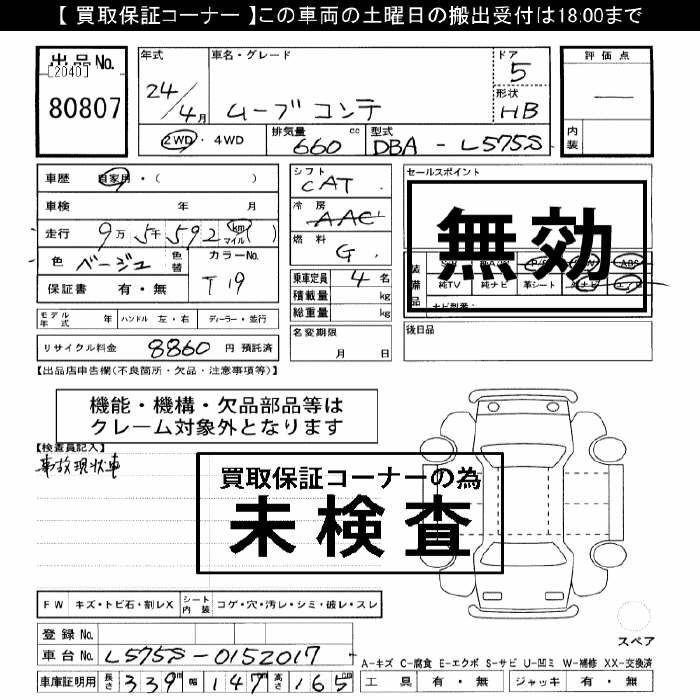 【買取保証コーナー】この車両の土曜日の搬出受付は18:00まで
出品No.
[2040]
80807
年式
24/4月
車名・グレード
ムーブコンテ
ドア
5
形状
HB
評価点
―
内装
2WD・4WD
排気量
660 cc
型式
DBA - L575S
車歴 自家用・( )
車検 年 月
走行 9万5千592 km マイル ( )
色 ベージュ 色替
カラーNo.
T19
保証書 有・無
シフト
CAT
冷房
AAC
燃料
G
乗車定員 4 名
積載量 kg
総重量 kg
セールスポイント
無効
装備品
ABS
純TV 純ナビ 革シート
モデル年式 年 ハンドル 左・右 ディーラー・並行
リサイクル料金 8860 円 預託済
名変期限
月 日
後日品
【出品店申告欄(不良箇所・欠品・注意事項等)】
機能・機構・欠品部品等は
クレーム対象外となります
【検査員記入】
事故現状車
買取保証コーナーの為
未検査
FW キズ・トビ石・割レX シート内装 コゲ・穴・汚レ・シミ・破レ・スレ
登録No.
車台No. L575S-0152017
車庫証明用 長さ 339 幅 147 高さ 165 cm
スペア
A-キズ C-腐食 E-エクボ S-サビ U-凹ミ W-補修 XX-交換済
工具 有・無 ジャッキ 有・無